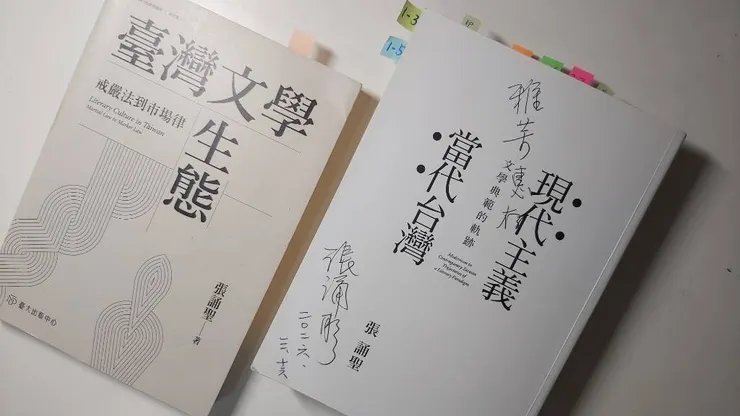 臺灣文學
生態
戒嚴法到市場律
Literary Culture in Taiwan
Martial Law to Market Law
張誦聖—著
臺大出版中心
1-3
1-5
雅芳惠存
現代主義
文學典範的軌跡
當代台灣
Modernism in
Contemporary Taiwan
Trajectories of
a Literary Paradigm
張誦聖
張誦聖
二〇二六.
三.